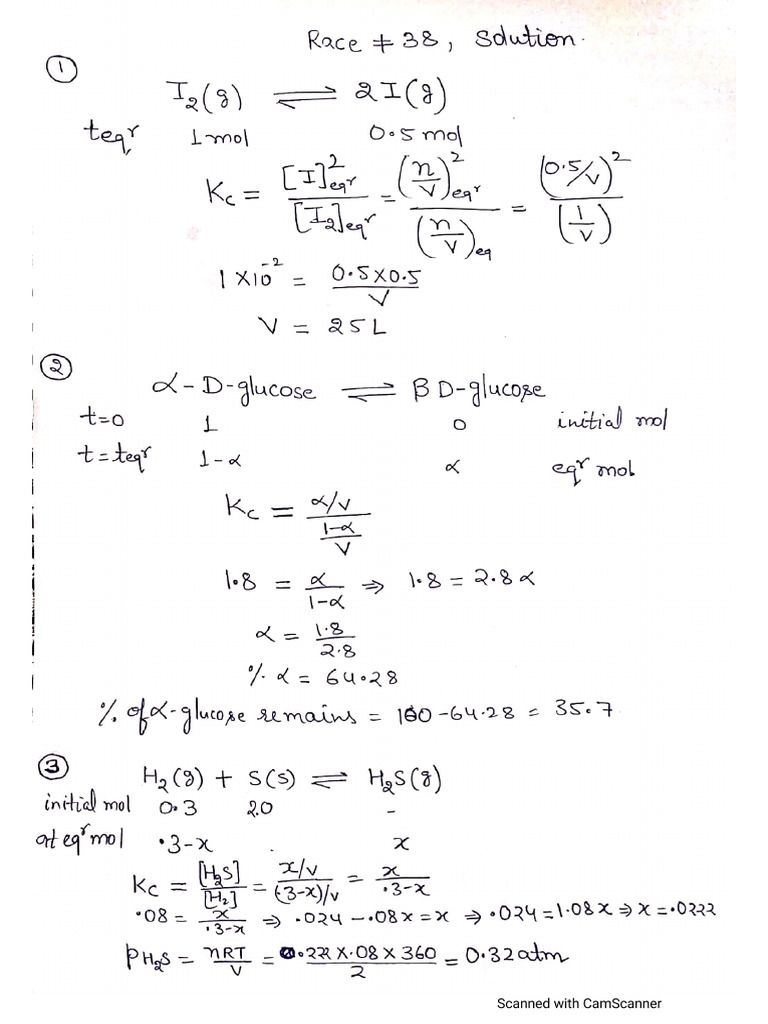 Race # 38, Solution.
①
I₂(g) ⇌ 2I(g)
teqr 1 mol 0.5 mol
Kc = [I]²eqr / [I₂]eqr = (n/V)²eqr / (n/V)eq = (0.5/V)² / (1/V)
1 × 10⁻² = 0.5×0.5 / V
V = 25 L
②
α - D-glucose ⇌ β D-glucose
t=0 1 0 initial mol
t = teqr 1-α α eqr mol
Kc = α/V / 1-α/V
1.8 = α / 1-α ⇒ 1.8 = 2.8 α
α = 1.8 / 2.8
% α = 64.28
% of α-glucose remains = 100 - 64.28 = 35.7
③
H₂(g) + S(s) ⇌ H₂S(g)
initial mol 0.3 2.0 -
at eqr mol .3-x . x
Kc = [H₂S] / [H₂] = x/V / (.3-x)/V = x / .3-x
.08 = x / .3-x ⇒ .024 - .08x = x ⇒ .024 = 1.08x ⇒ x = .0222
PH₂S = nRT / V = 0.22 × .08 × 360 / 2 = 0.32 atm
Scanned with CamScanner